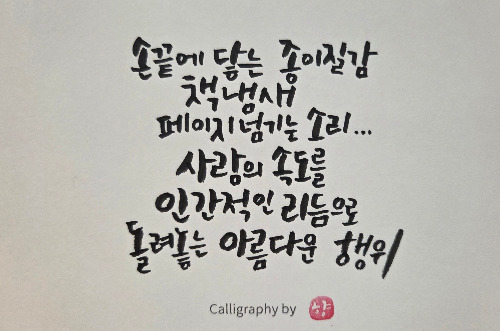 손끝에 닿는 종이질감
책냄새
페이지 넘기는 소리...
사람의 속도를
인간적인 리듬으로
돌려놓는 아름다운 행위
Calligraphy by 향